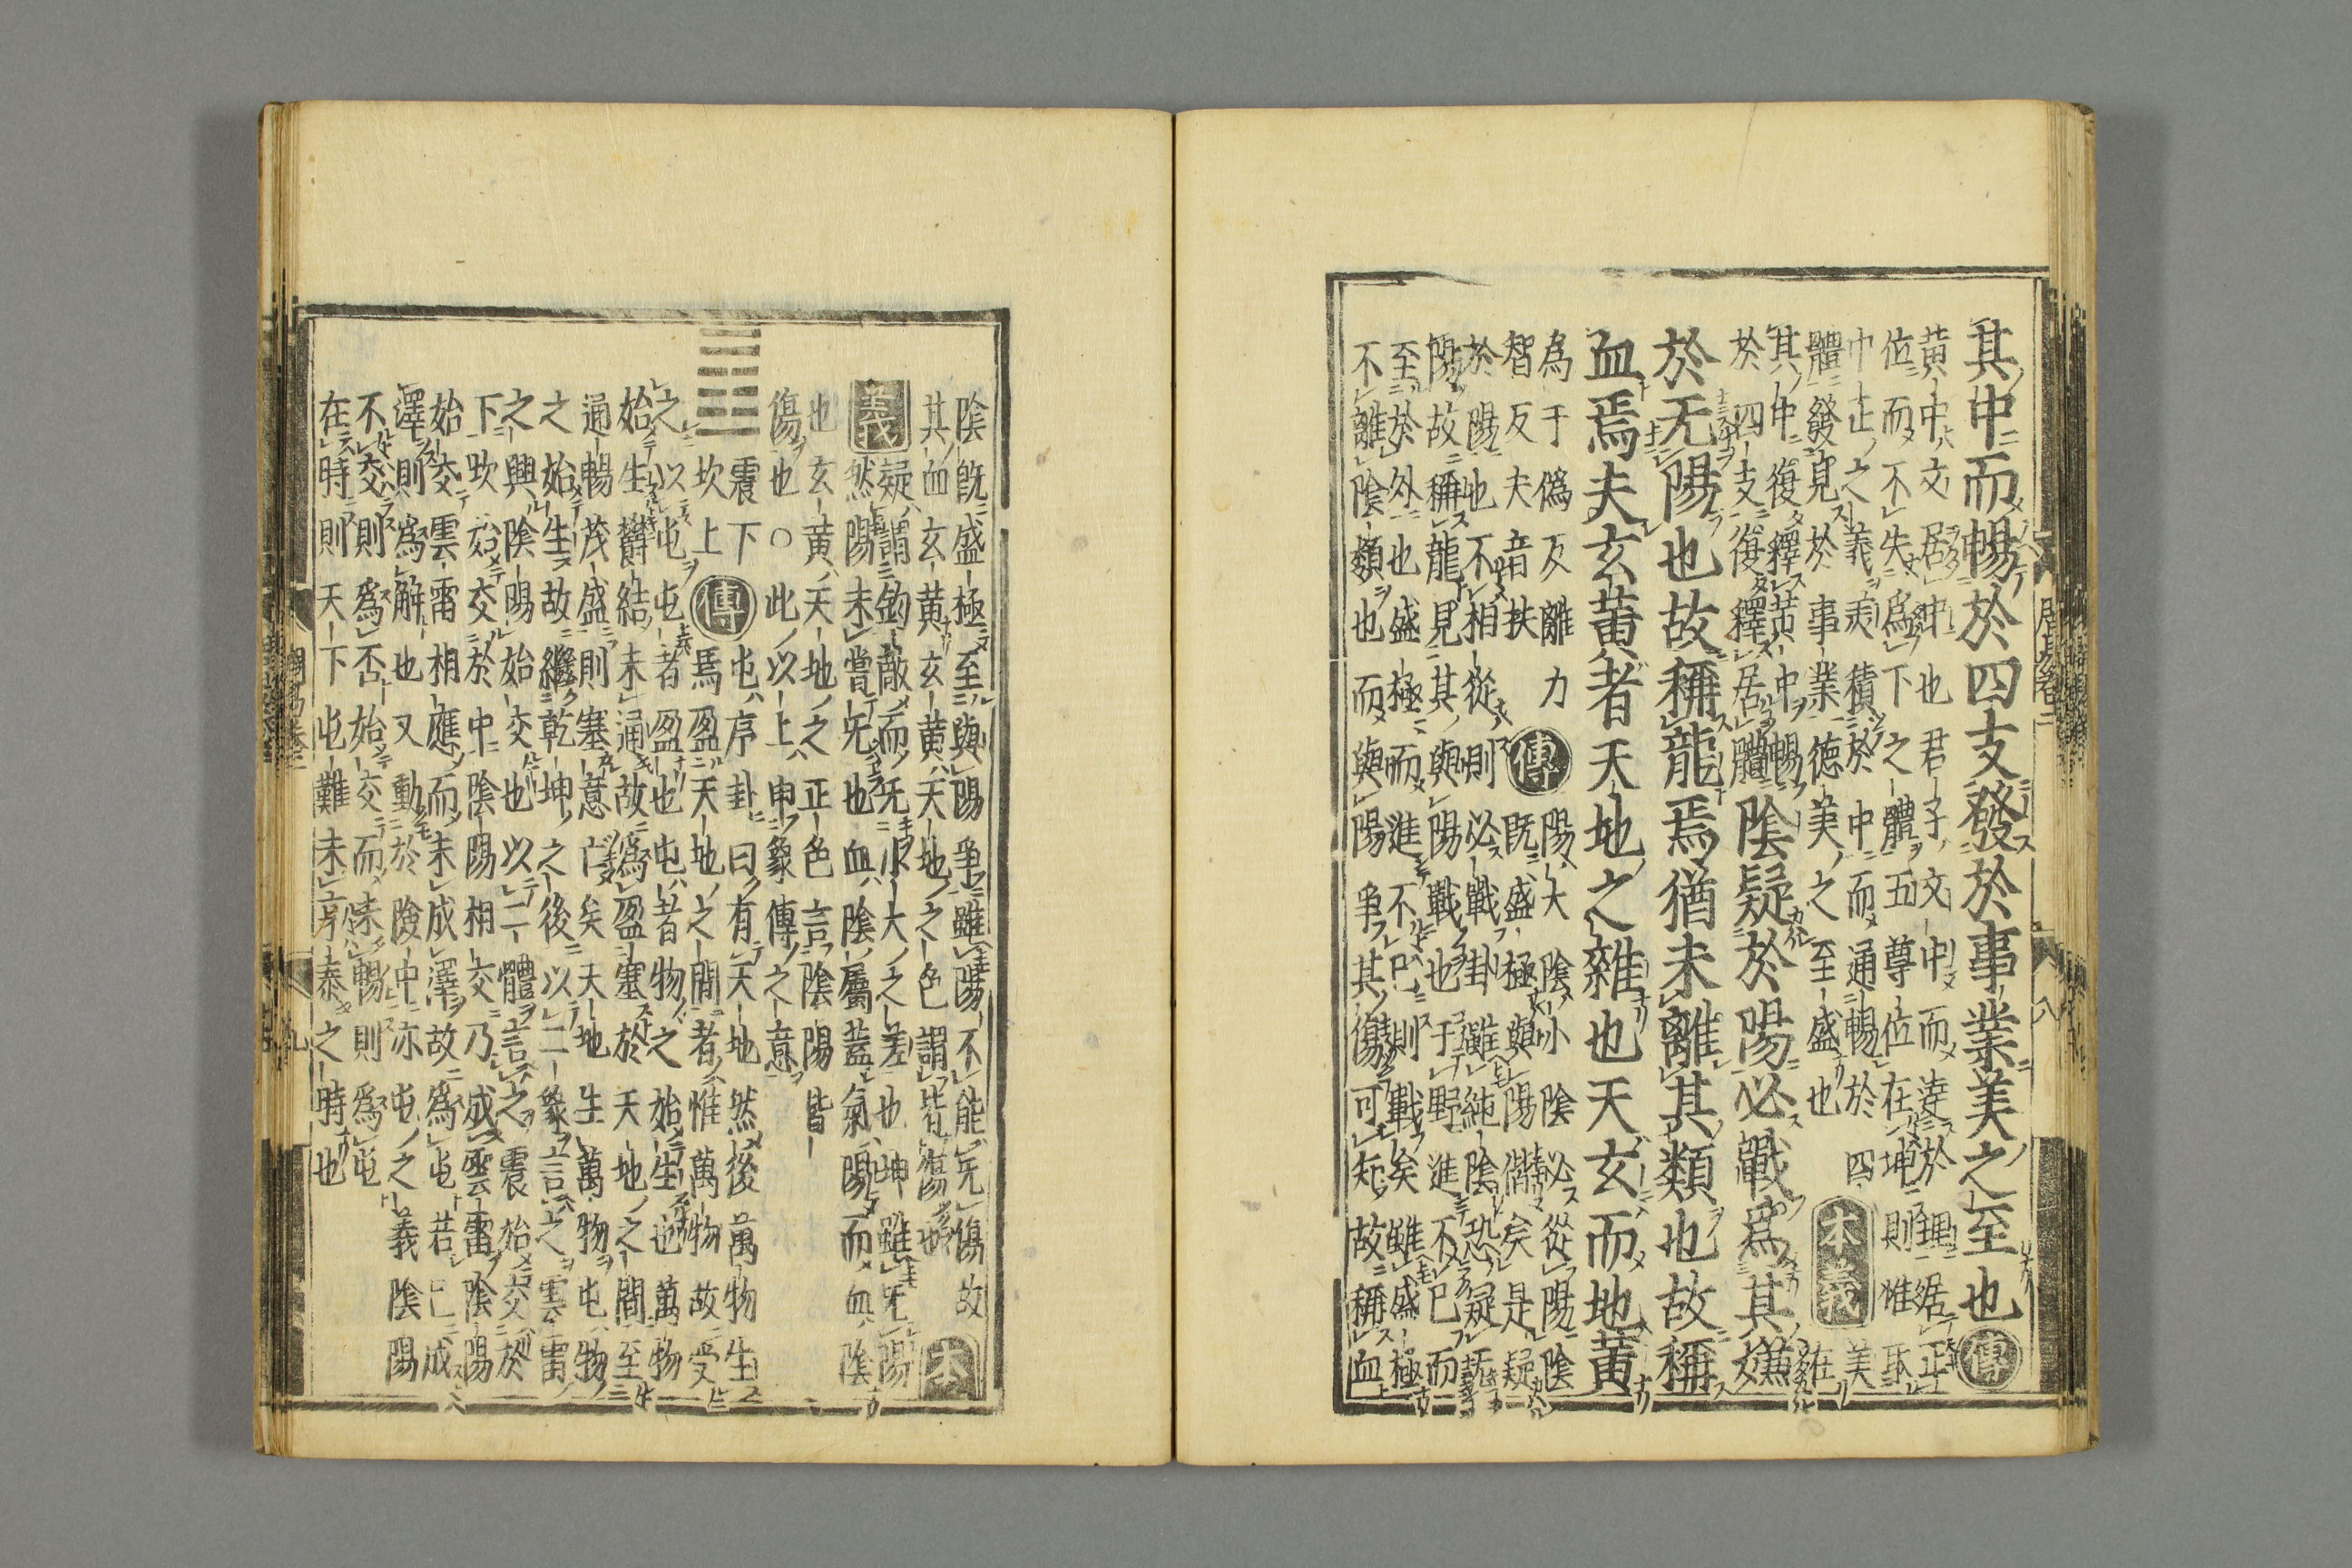 其中而暢於四支發於事業美之至也傳
黃中文居中也君子文中而達於理居正
位而不失爲下之體五尊位在坤則惟取
中正之義美積於中而通暢於四
體發見於事業德美之至盛也本義美在
其中復釋黃中暢
於四支復釋居體陰疑於陽必戰爲其嫌
於无陽也故稱龍焉猶未離其類也故稱
血焉夫玄黃者天地之雜也天玄而地黃
為于偽反離力
智反夫音扶傳陽大陰小陰必從陽陰
既盛極與陽偕矣是疑
於陽也不相從則必戰卦雖純陰恐疑无
陽故稱龍見其與陽戰也于野進不已而
至於外也盛極而進不已則戰矣雖盛極
不離陰類也而與陽爭其傷可知故稱血
陰既盛極至與陽爭雖陽不能无傷故
其血玄黃玄黃天地之色謂皆傷也本
義疑謂鈞敵而无小大之差也坤雖无陽
然陽未嘗无也血陰屬蓋氣陽而血陰
也玄黃天地之正色言陰陽皆
傷也○此以上申象傳之意
䷂震下坎上傳屯序卦曰有天地然後萬物生
焉盈天地之間者惟萬物故受
之以屯屯者盈也屯者物之始生也萬物
始生鬱結未通故爲盈塞於天地之間至
通暢茂盛則塞意亡矣天地生萬物屯物
之始生故繼乾坤之後以二象言之雲雷
之興陰陽始交也以二體言之震始交於
下坎始交於中陰陽相交乃成雲雷陰陽
始交雲雷相應而未成澤故爲屯若已成
澤則爲解也又動於險中亦屯之義陰陽
不交則爲否始交而未暢則爲屯
在時則天下屯難未亨泰之時也
周易卷二
八